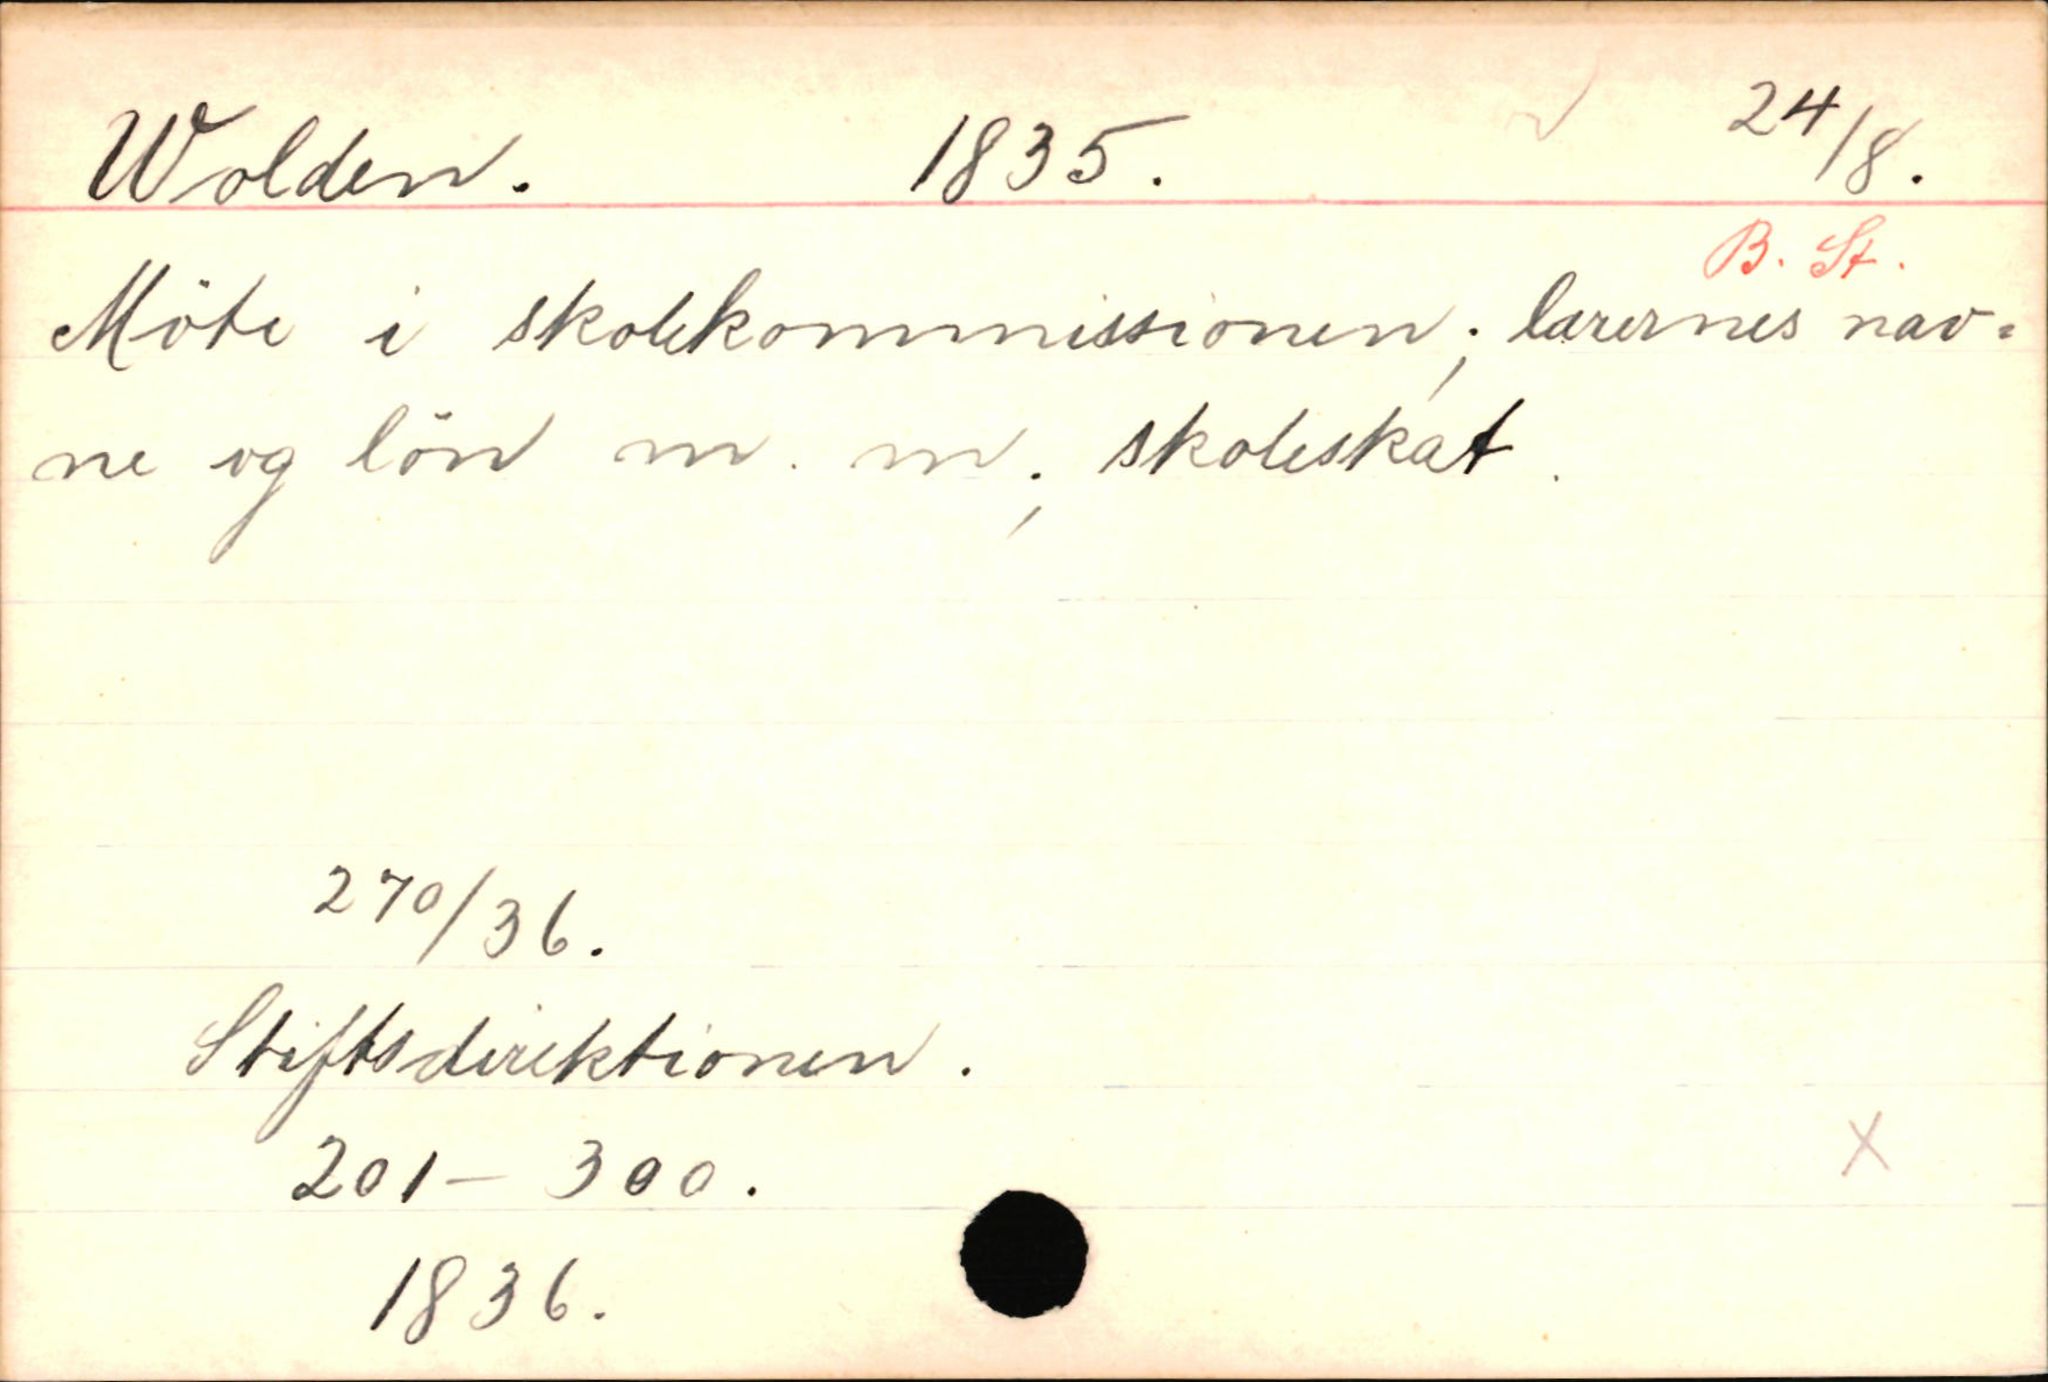 Wolden. 1835. 24/8.
B. St.
Möte i skolekommissionen; lærernes nav=
ne og lön m. m.; skoleskat.
270/36.
Stiftsdirektionen.
201 - 300.
X
1836.